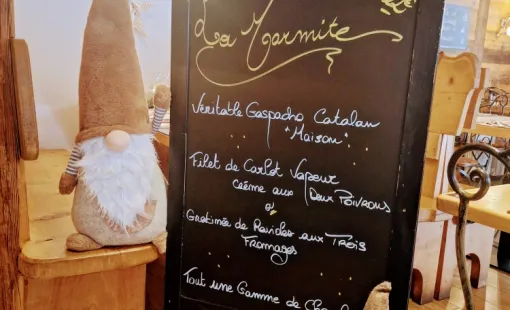 La Marmite
Véritable Gaspacho Catalan
"Maison"
Filet de Carlot Vapeur
crème aux Deux Poivrons
Gratinée de Ravioles aux Trois
Fromages
Tout une Gamme de